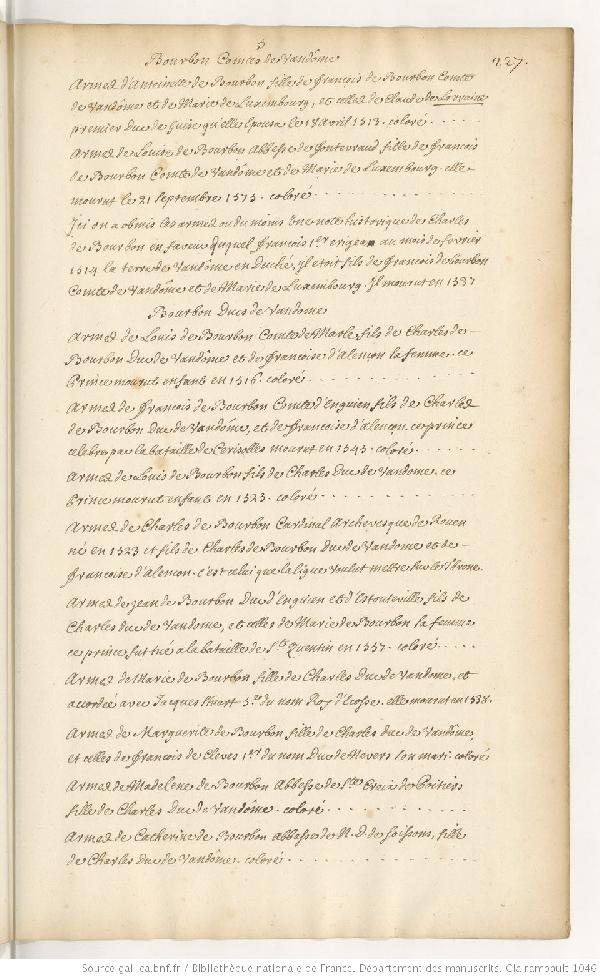 Bourbon Comtes de Vandôme
227.
Armes d'Antoinette de Bourbon fille de françois de Bourbon Comte
de Vandôme et de Marie de Luxembourg, et celles de Claude de Lorraine
premier Duc de Guise qu'elle Epousa le 17 avril 1513. coloré
Armes de Louise de Bourbon Abbesse de fontevraud fille de françois
de Bourbon Comte de Vandôme et de Marie de Luxembourg. elle
mourut le 21 septembre 1575. coloré
Jci on a obmis les armes ou du moins une note historique de Charles
de Bourbon en faveur duquel françois 1er erigea au mois de fevrier
1514 la terre de Vandôme en Duché, jl etoit fils de françois de Bourbon
Comte de Vandôme et de Marie de Luxembourg. Jl mourut en 1537
Bourbon Ducs de Vandome
Armes de Louis de Bourbon Comte de Marle fils de Charles de
Bourbon Duc de Vandôme et de francoise d'alençon sa femme. ce
Prince mourut enfant en 1516. coloré
Armes de françois de Bourbon Comte d'Enguien fils de Charles
de Bourbon Duc de Vandôme, et de francoise d'alençon. ce prince
celebre par la bataille de Cerisolles mourut en 1545. coloré
Armes de Louis de Bourbon fils de Charles Duc de Vandome. ce
Prince mourut enfant en 1523. coloré
Armes de Charles de Bourbon Cardinal Archevesque de Rouen
né en 1523 et fils de Charles de Bourbon Duc de Vandome et de
françoise d'Alencon. c'est celui que la ligue voulut mettre sur le Throne.
Armes de jean de Bourbon Duc d'Enguien et d'Estouteville fils de
Charles duc de Vandome, et celles de Marie de Bourbon sa femme
ce prince fut tué a la bataille de St Quentin en 1557. coloré
Armes de Marie de Bourbon fille de Charles Duc de Vandome, et
accordée avec Jacques Stuart 5.e du nom Roy d'Ecosse. elle mourut en 1538.
Armes de Marguerite de Bourbon fille de Charles duc de Vandôme,
et celles de françois de Cleves 1er du nom Duc de Nevers son mari. coloré
Armes de Madelene de Bourbon Abbesse de Ste Croix de Poitiers
fille de Charles Duc de Vandôme. coloré
Armes de Catherine de Bourbon abbesse de N. D. de Soissons, fille
de Charles duc de Vandôme. coloré
Source gallica.bnf.fr / Bibliothèque nationale de France. Département des manuscrits. Clairambault 1046